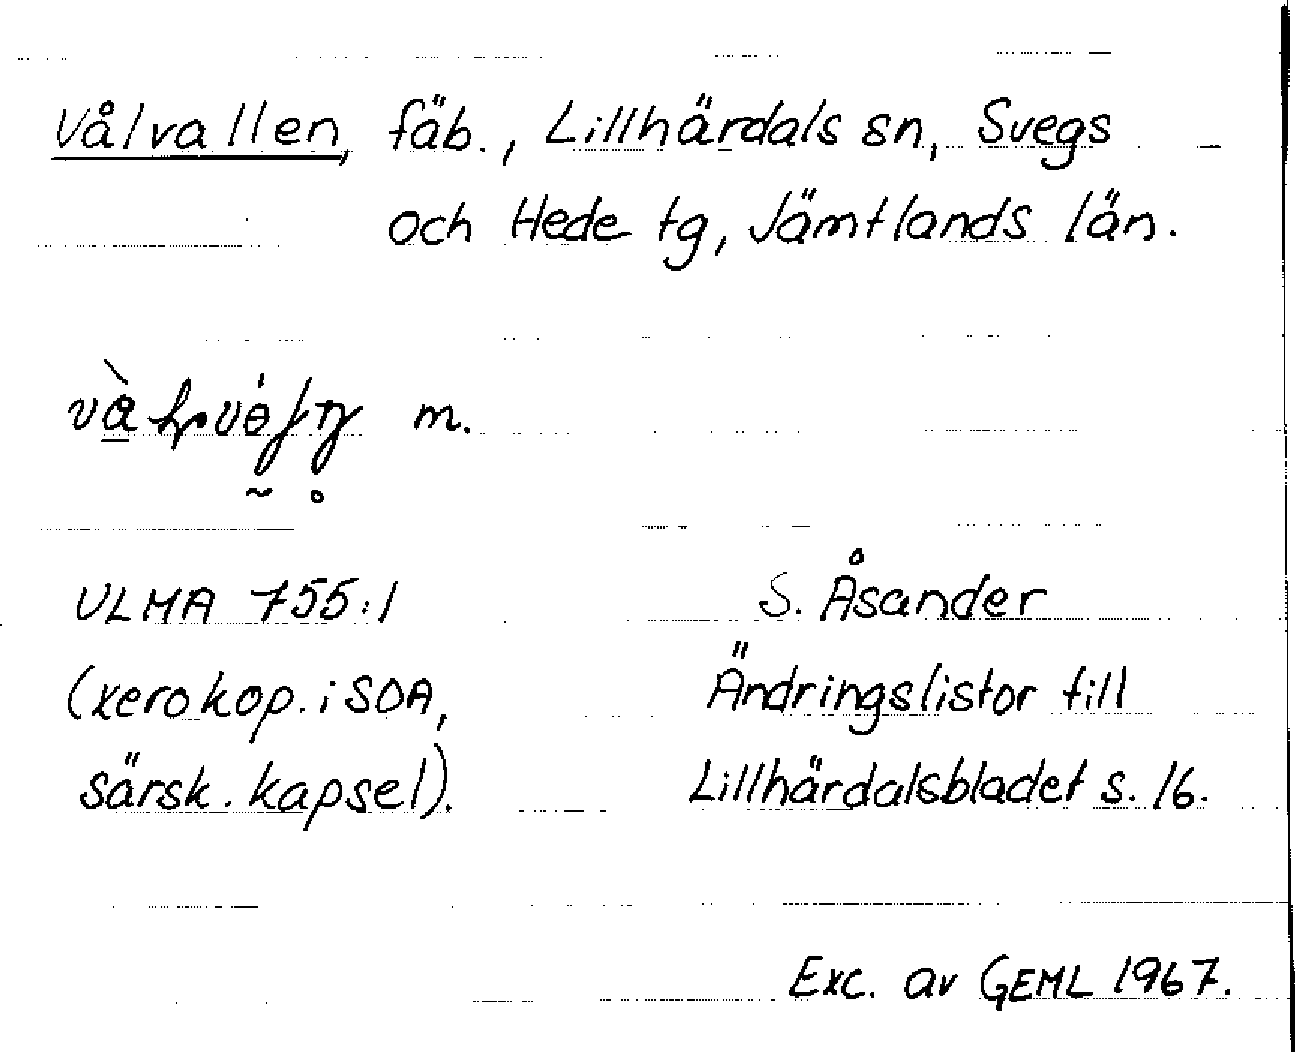 Vålvallen, fäb., Lillhärdals sn, Svegs
och Hede tg, Jämtlands län.
m.
ULMA 755:1
S. Åsander
(xerokop. i SOA,
Ändringslistor till
särsk. kapsel).
Lillhärdalsbladet s. 16.
Exc. av GEML 1967.